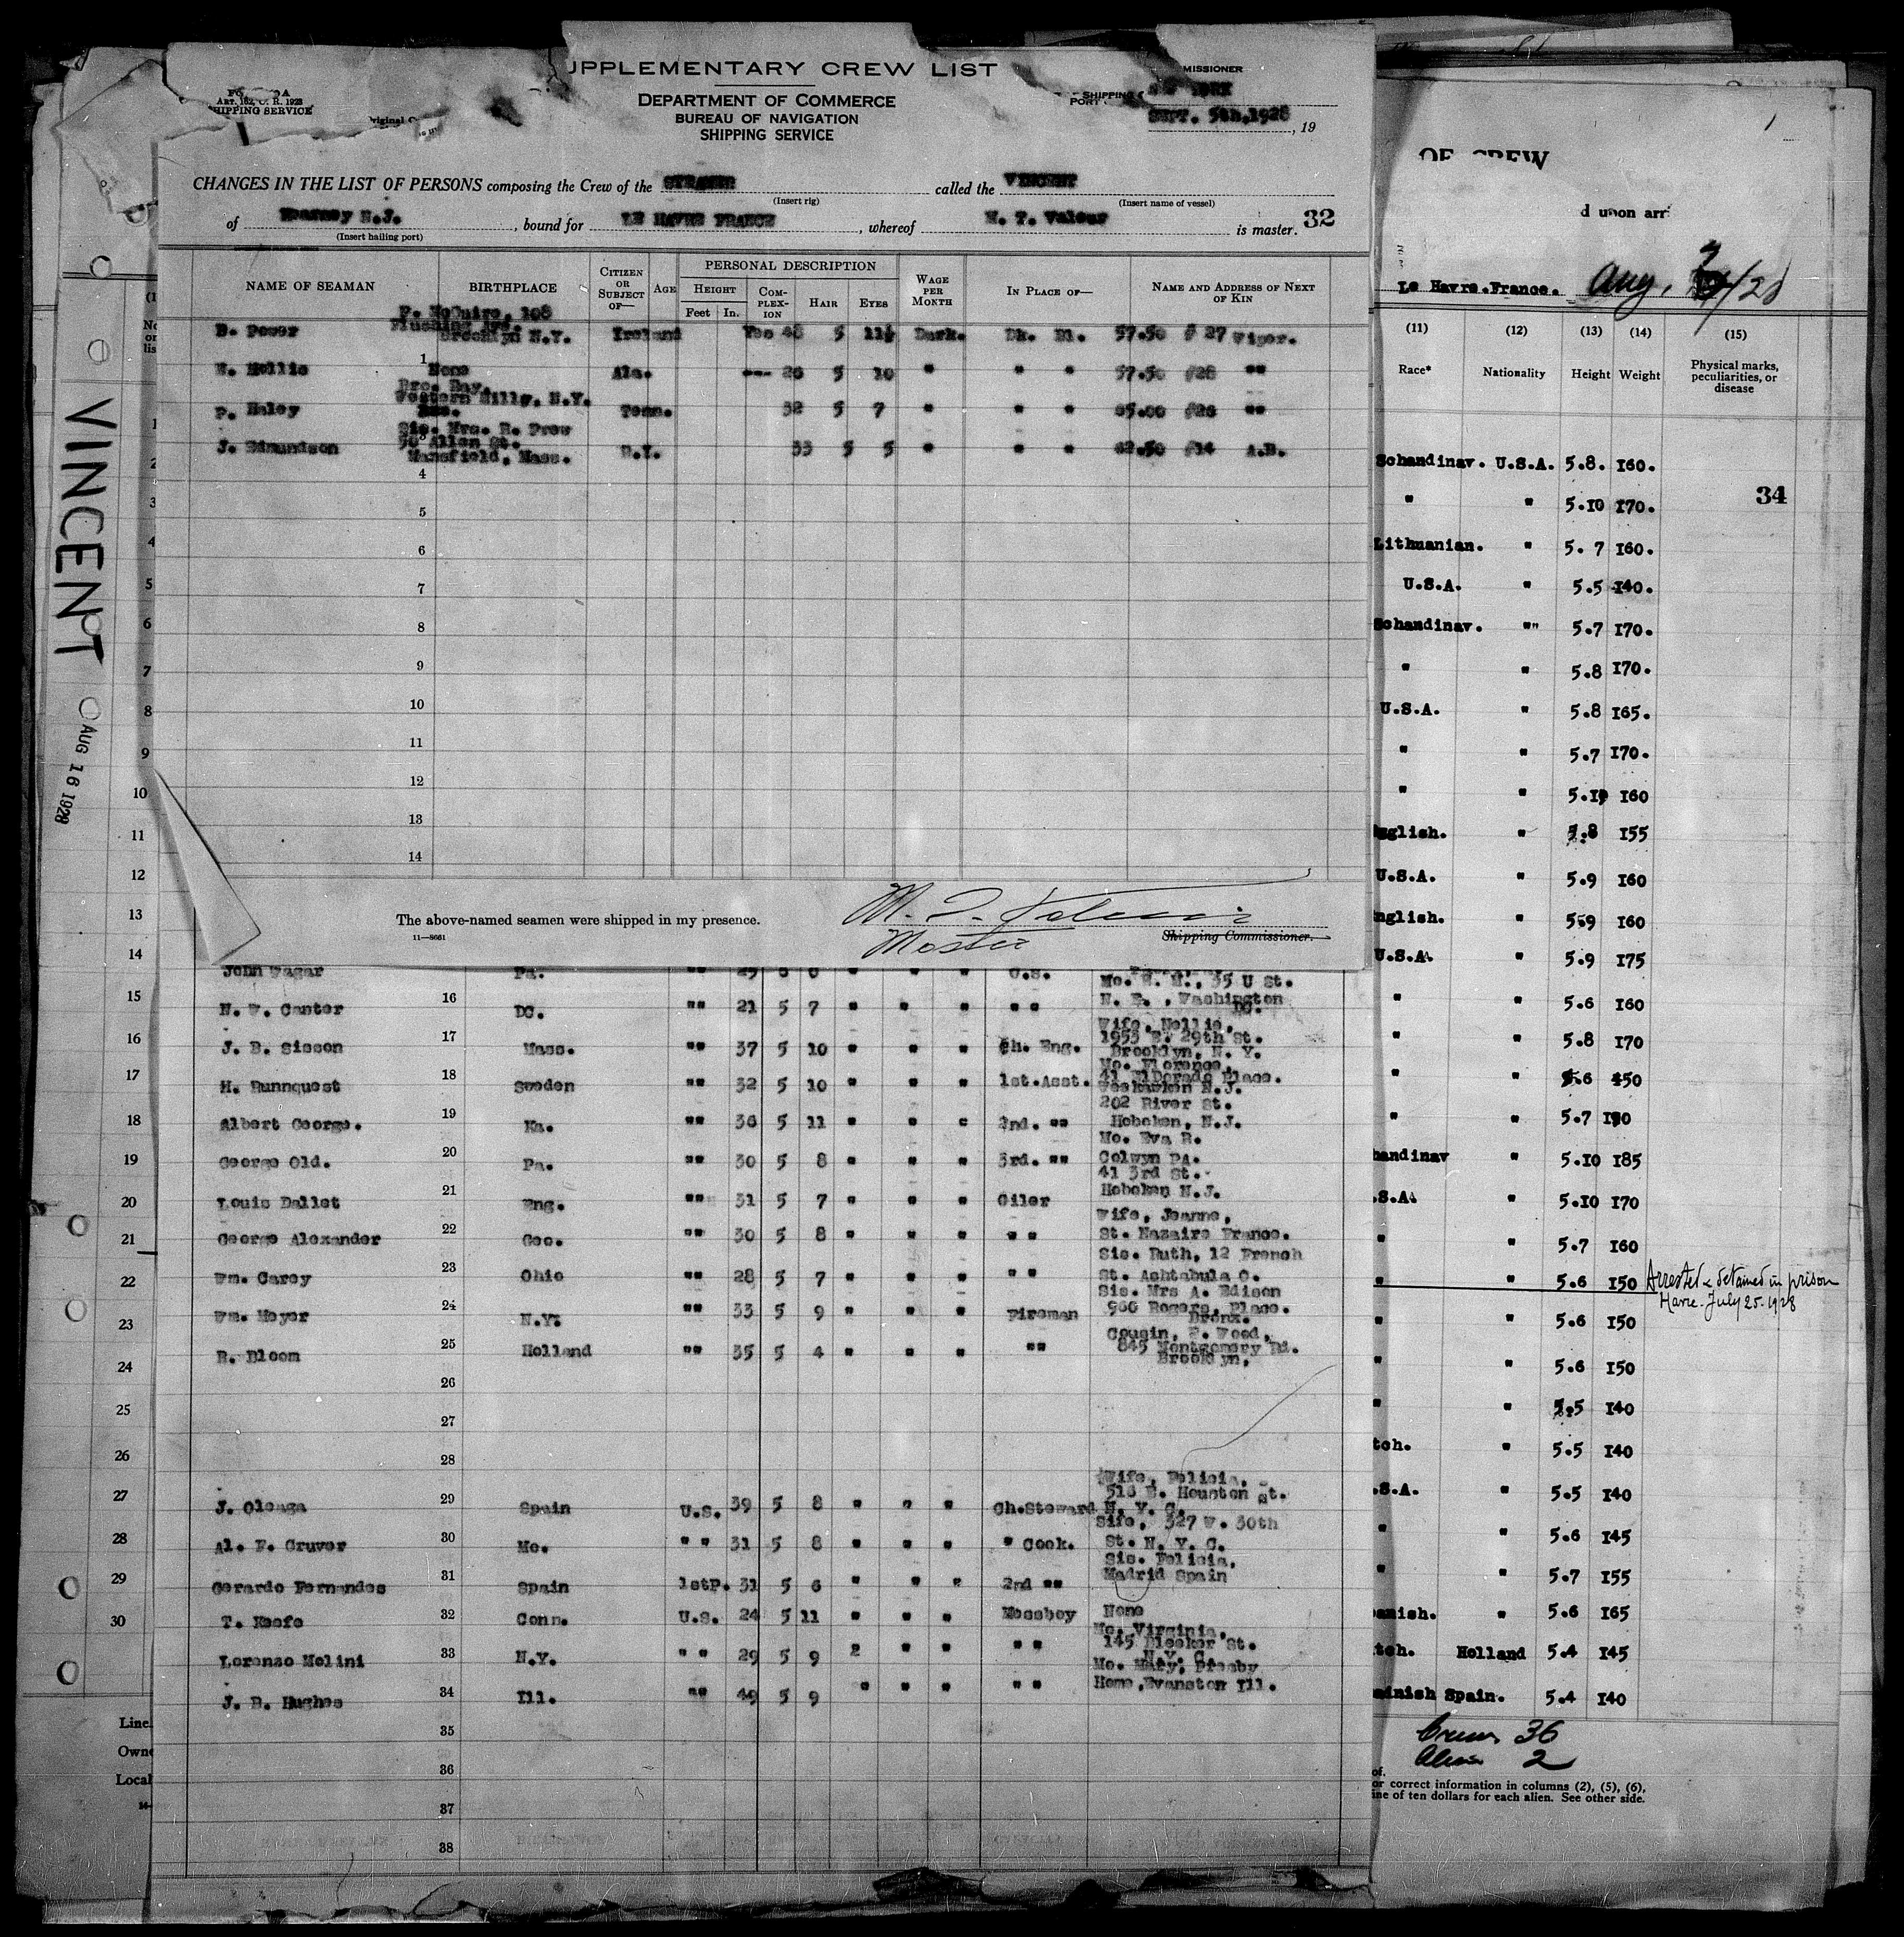 UPPLEMENTARY CREW LIST
MISSIONER
ART. 162, C. R. 1923
SHIPPING SERVICE
DEPARTMENT OF COMMERCE
BUREAU OF NAVIGATION
SHIPPING SERVICE
SHIPPING
PORT
SEPT. 5th, 1928
, 19
CHANGES IN THE LIST OF PERSONS composing the Crew of the STEAMER called the VINCENT
(Insert rig) (Insert name of vessel)
of Kearney N.J. , bound for LE HAVRE FRANCE , whereof M. T. Valour is master. 32
(Insert hailing port)
NAME OF SEAMAN BIRTHPLACE CITIZEN OR SUBJECT OF— AGE PERSONAL DESCRIPTION HEIGHT Feet In. COM-PLEX-ION HAIR EYES WAGE PER MONTH IN PLACE OF— NAME AND ADDRESS OF NEXT OF KIN
F. McQuire, 108
Flushing Ave.
D. Power Brooklyn N.Y. Ireland Yes 48 5 11½ Dark. Dk. Bl. 57.50 # 27 Wiper.
1
E. Hollis None Ala. --- 20 5 10 " " " 57.50 #28 ""
Bro. Ray,
Western Mills, N.Y.
P. Haley Tenn. 32 5 7 " " " 65.00 #26 ""
Sis. Mrs. R. Prew
50 Allen St.
J. Edmundson Mansfield, Mass. N.Y. 33 5 5 " " " 62.50 #14 A.B.
4
5
6
7
8
9
10
11
12
13
14
The above-named seamen were shipped in my presence.
11—8661
M. T. Valour
Master
Shipping Commissioner.
John Wagar Pa. "" 29 6 0 " " " O.S.
Mo. E. M., 35 U St.
N. W. Canter 16 DC. "" 21 5 7 " " " "" N. E., Washington DC.
Wife, Nellie,
1953 E. 29th St.
J. B. Sisson 17 Mass. "" 37 5 10 " " " Ch. Eng. Brooklyn, N. Y.
Mo. Florence,
41 ElDorado Place.
H. Runnquest 18 Sweden "" 32 5 10 " " " 1st.Asst. Weehawken N.J.
202 River St.
Albert George. 19 Ka. "" 36 5 11 " " " 2nd. "" Hoboken, N.J.
Mo. Eva R.
George Old. 20 Pa. "" 30 5 8 " " " 3rd. "" Colwyn PA.
41 3rd St.
Louis Dallet 21 Eng. "" 31 5 7 " " " Oiler Hoboken N.J.
Wife, Jeanne,
George Alexander 22 Geo. "" 30 5 8 " " " "" St. Nazaire France.
Sis. Ruth, 12 French
Wm. Carey 23 Ohio "" 28 5 7 " " " "" St. Ashtabula O.
Sis. Mrs A. Edison
Wm. Meyer 24 N.Y. "" 33 5 9 " " " Fireman 960 Rogers, Place.
Bronx.
Cousin, E. Wood,
R. Bloom 25 Holland "" 35 5 4 " " " "" 845 Montgomery Rd.
Brooklyn,
26
27
28
Wife, Felicia,
518 E. Houston St.
J. Oleaga 29 Spain U.S. 39 5 8 " " " Ch.Steward N. Y. C.
Wife, 327 W. 30th
Al. F. Gruver 30 Mo. "" 31 5 8 " " " " Cook. St. N. Y. C.
Sis. Felicia,
Gerardo Fernandes 31 Spain 1stP. 31 5 6 " " " 2nd "" Madrid Spain
T. Keefe 32 Conn. U.S. 24 5 11 " " " Messboy None
Mo. Virginia,
145 Bleeker St.
Lorenzo Molini 33 N.Y. "" 29 5 9 " " " "" N.Y. C.
J. B. Hughes 34 Ill. "" 49 5 9 " " " "" Home, Evanston Ill.
35
36
37
38
VINCENT
AUG 16 1928
1
2
3
4
5
6
7
8
9
10
11
12
13
14
15
16
17
18
19
20
21
22
23
24
25
26
27
28
29
30
Line
Owne
Local
1
OF CREW
d upon arr
Le Havre.France. Aug. /28
(11) (12) (13) (14) (15)
Race* Nationality Height Weight Physical marks, peculiarities, or disease
Schandinav. U.S.A. 5.8. 160.
34
" " 5.10 170.
Lithuanian. " 5.7 160.
U.S.A. " 5.5 140.
Schandinav. "" 5.7 170.
" " 5.8 170.
U.S.A. " 5.8 165.
" " 5.7 170.
" " 5.10 160
nglish. " 5.8 155
U.S.A. " 5.9 160
nglish. " 5.9 160
U.S.A. " 5.9 175
" " 5.6 160
" " 5.8 170
" " 5.6 150
" " 5.7
handinav " 5.10 185
.S.A. " 5.10 170
" " 5.7 160
" " 5.6 150 Arrested & detained in prison
Havre. July 25. 1928
" " 5.6 150
" " 5.6 150
" " 5.5 140
tch. " 5.5 140
.S.A. " 5.5 140
" " 5.6 145
" " 5.7 155
panish. " 5.6 165
tch. Holland 5.4 145
Spain. 5.4 140
Crew 36
Alien 2
of.
or correct information in columns (2), (5), (6),
ine of ten dollars for each alien. See other side.